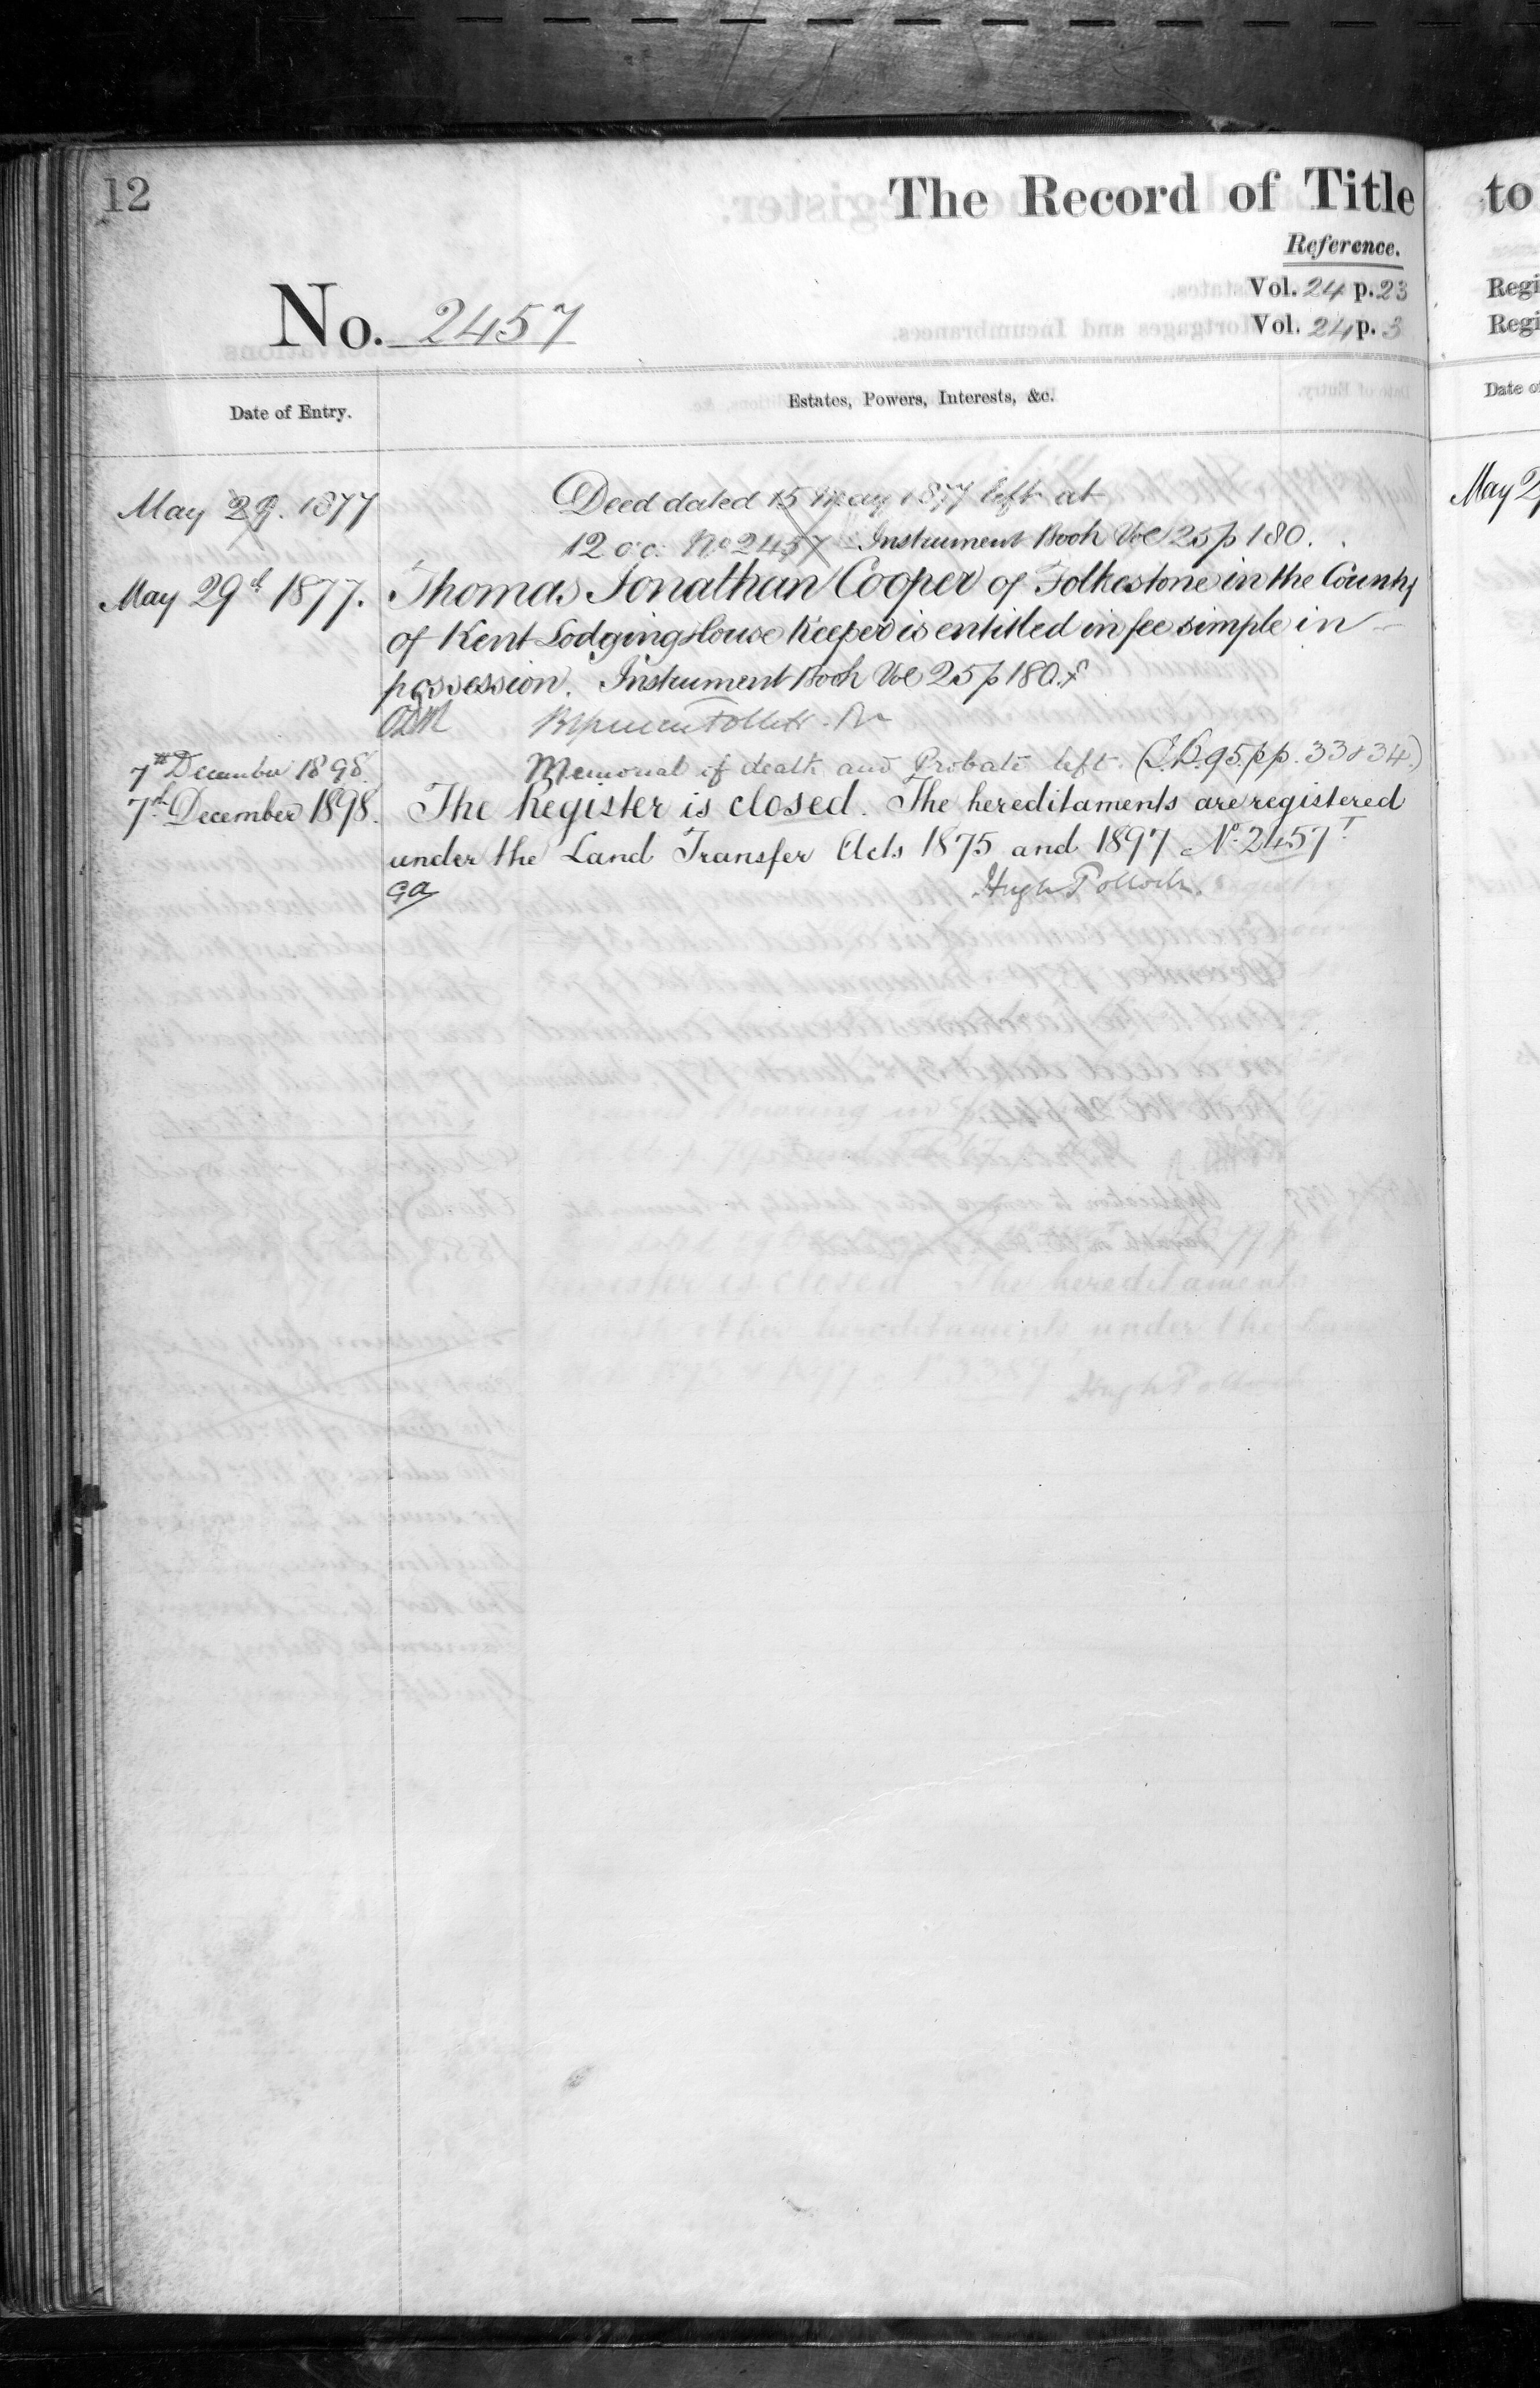 12
The Record of Title
to
Reference.
Vol. 24 p. 23
Regi
Vol. 24 p. 3
Regi
No. 2457
Date of Entry.
Estates, Powers, Interests, &c.
Date of
May 29. 1877
Deed dated 15 May 1877 left at
May 2
12 o.c. No 2457 Instrument Book Vol 25 p 180.
May 29th 1877.
Thomas Jonathan Cooper of Folkestone in the County
of Kent Lodging House Keeper is entitled in fee simple in
possession. Instrument Book Vol 25 p 180.
7th December 1898.
Memorial of death and Probate left. (I.B. 95. pp. 33 & 34.)
7th December 1898.
The Register is closed. The hereditaments are registered
under the Land Transfer Acts 1875 and 1897 No. 2457T
Hugh Pollock.